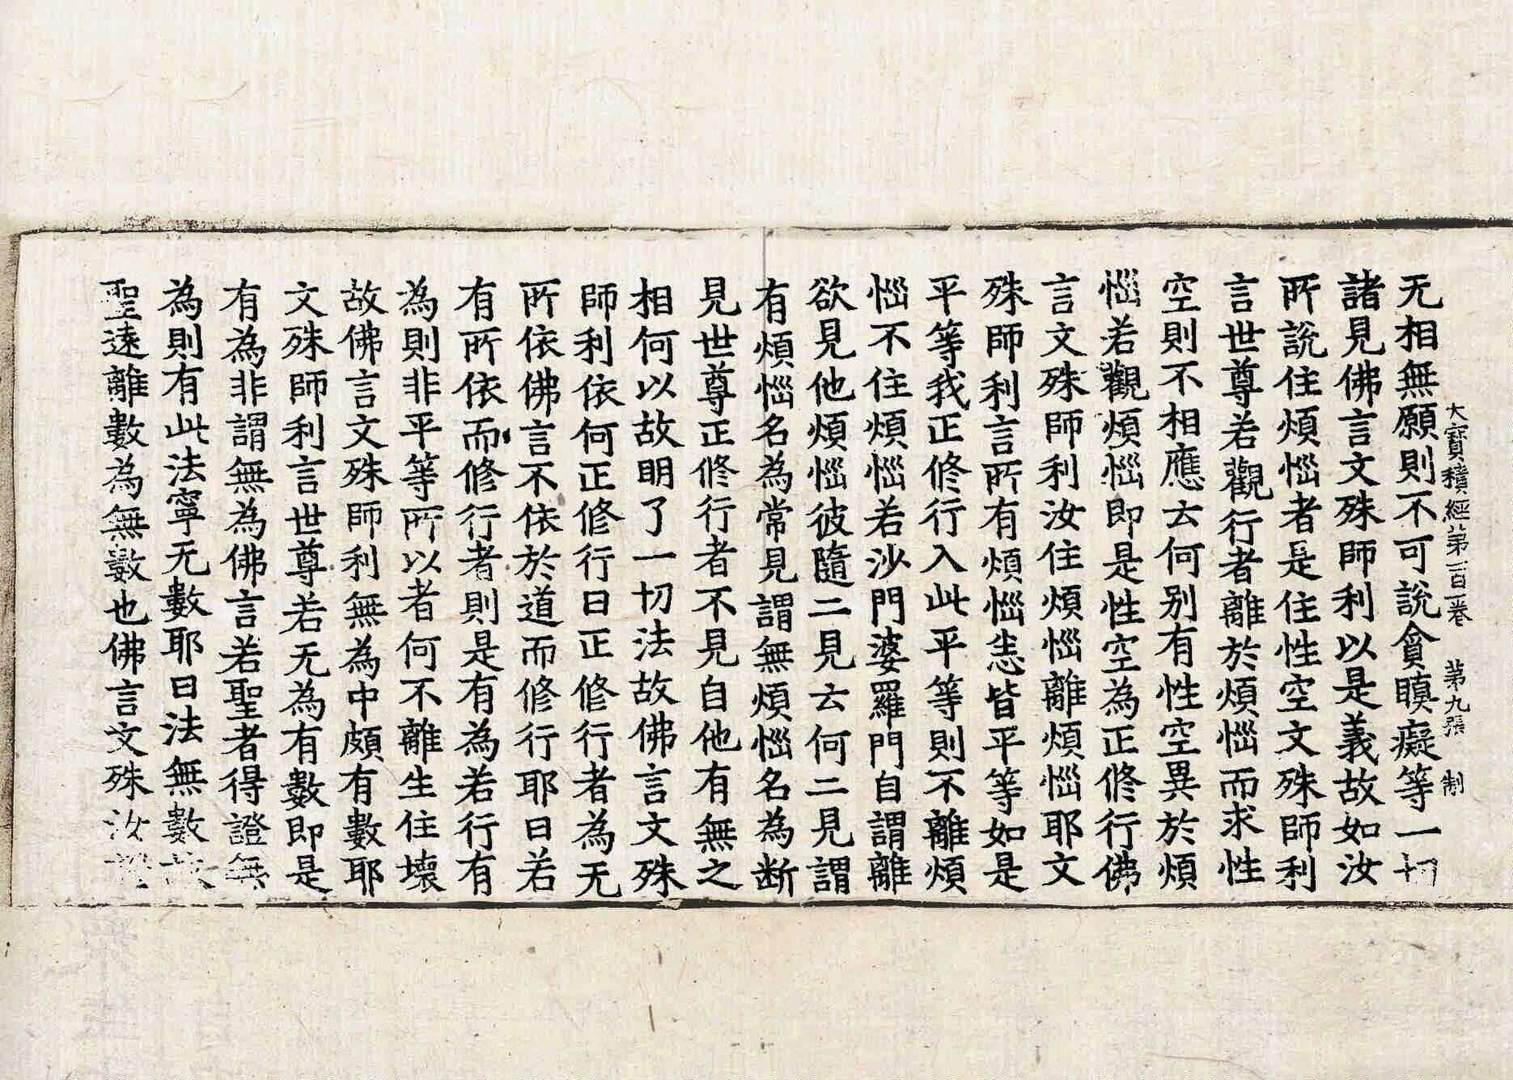 大寶積經第一百一卷　第九張　制
无相無願則不可說貪瞋癡等一切
諸見佛言文殊師利以是義故如汝
所說住煩惱者是住性空文殊師利
言世尊若觀行者離於煩惱而求性
空則不相應云何別有性空異於煩
惱若觀煩惱即是性空為正修行佛
言文殊師利汝住煩惱離煩惱耶文
殊師利言所有煩惱悉皆平等如是
平等我正修行入此平等則不離煩
惱不住煩惱若沙門婆羅門自謂離
欲見他煩惱彼隨二見云何二見謂
有煩惱名為常見謂無煩惱名為断
見世尊正修行者不見自他有無之
相何以故明了一切法故佛言文殊
師利依何正修行曰正修行者為无
所依佛言不依於道而修行耶曰若
有所依而修行者則是有為若行有
為則非平等所以者何不離生住壞
故佛言文殊師利無為中頗有數耶
文殊師利言世尊若无為有數即是
有為非謂無為佛言若聖者得證無
為則有此法寧无數耶曰法無數故
聖遠離數為無數也佛言文殊汝證